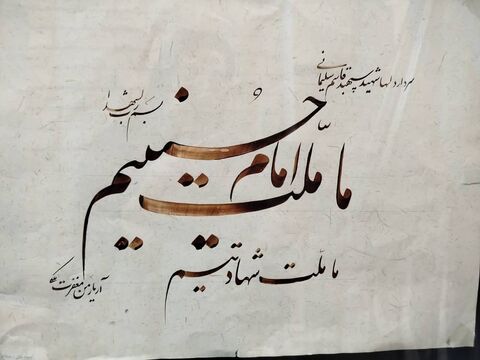 سردار دلها شهید سپهبد قاسم سلیمانی
بسم رب الشهدا
ما ملت امام حسینیم
ما ملت شهادتیم